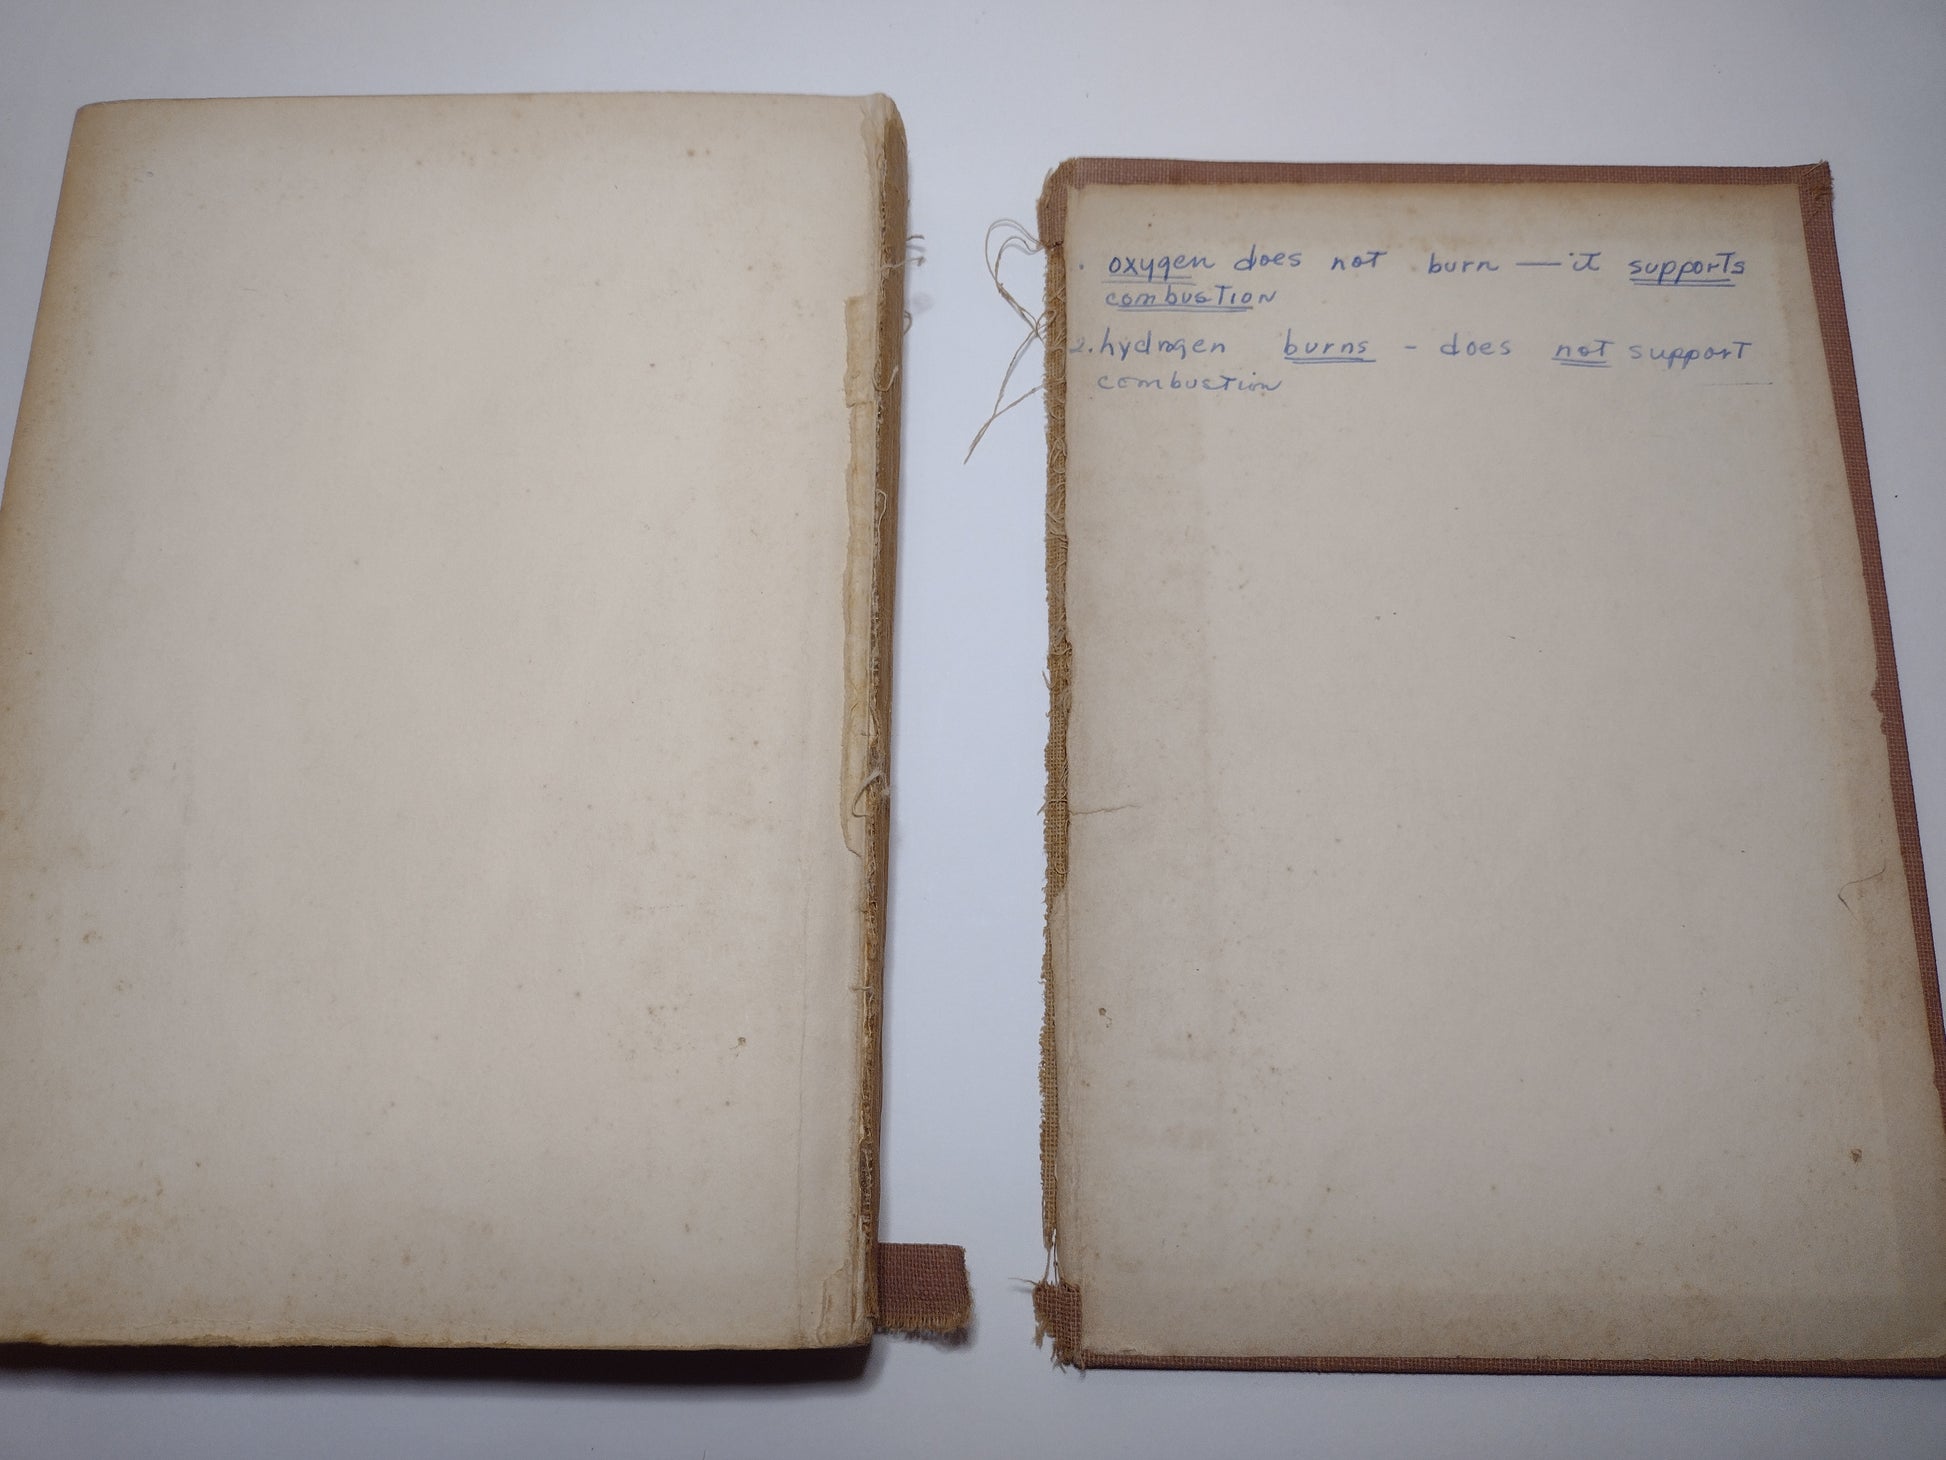 . oxygen does not burn — it supports
combustion
2. hydrogen burns - does not support
combustion